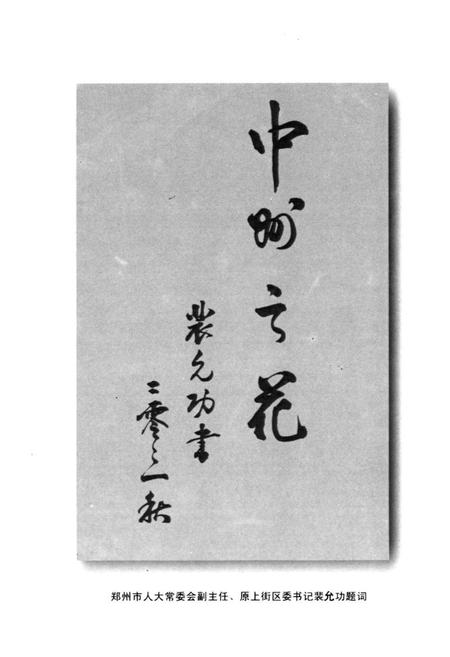 中州之花
裴允功書
二零〻一秋
郑州市人大常委会副主任、原上街区委书记裴允功题词